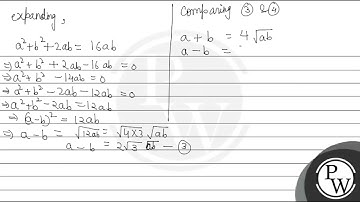 expanding,
a²+b²+2ab = 16ab
⇒ a²+b²+2ab-16ab = 0
⇒ a²+b² -14ab = 0
⇒ a²+b²-2ab-12ab = 0
⇒ a²+b²-2ab = 12ab
⇒ (a-b)² = 12ab
⇒ a-b = √12ab = √4×3 √ab
a-b = 2√3 √ab — ③
comparing ③ & ④
a+b = 4√ab
a-b =
P
W
PW